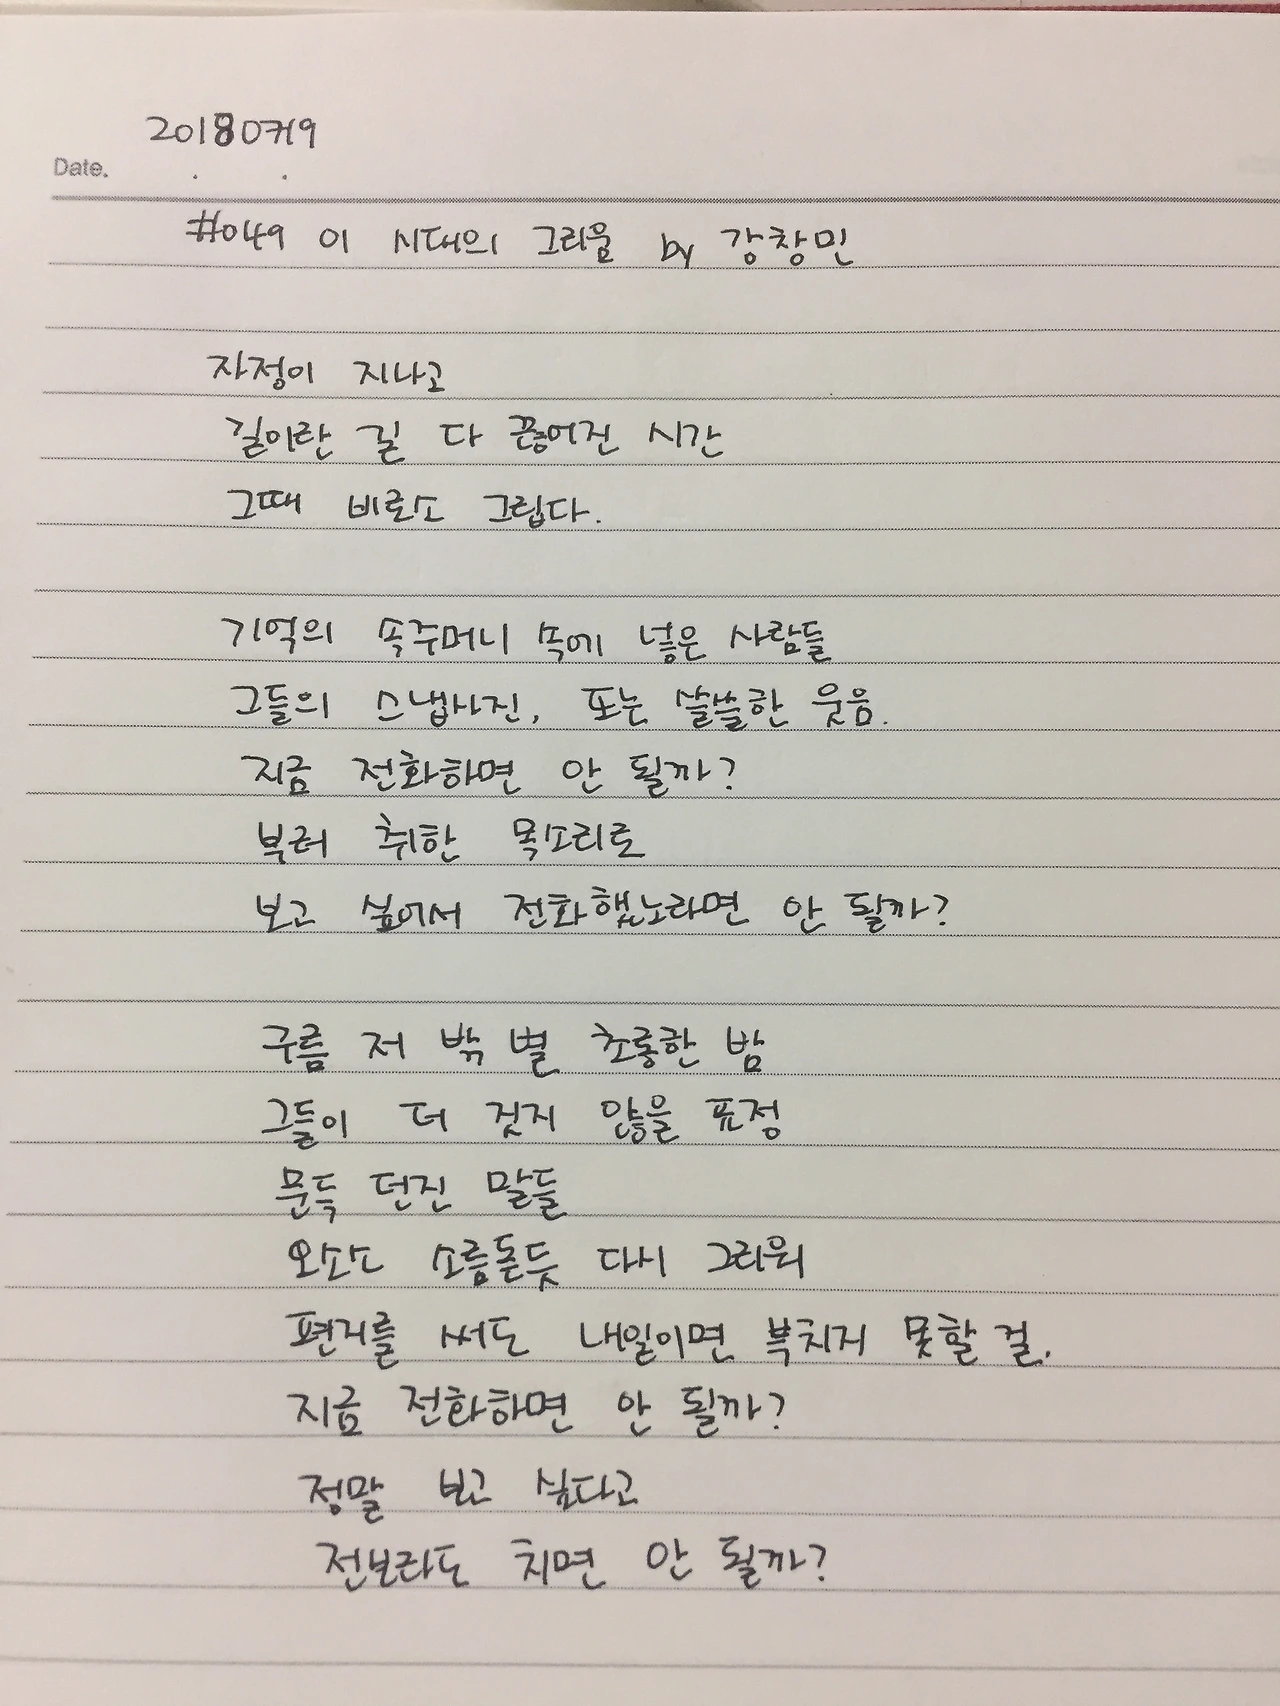 20180719
Date.
#049 이 시대의 그리움 by 강창민
자정이 지나고
길이란 길 다 끊어진 시간
그때 비로소 그립다.
기억의 속주머니 속에 넣은 사람들
그들의 스냅사진, 또는 쓸쓸한 웃음.
지금 전화하면 안 될까?
부러 취한 목소리로
보고 싶어서 전화했노라면 안 될까?
구름 저 밖 별 초롱한 밤
그들이 더 짓지 않을 표정
문득 던진 말들
오소소 소름돋듯 다시 그리워
편지를 써도 내일이면 부치지 못할 걸.
지금 전화하면 안 될까?
정말 보고 싶다고
전보라도 치면 안 될까?